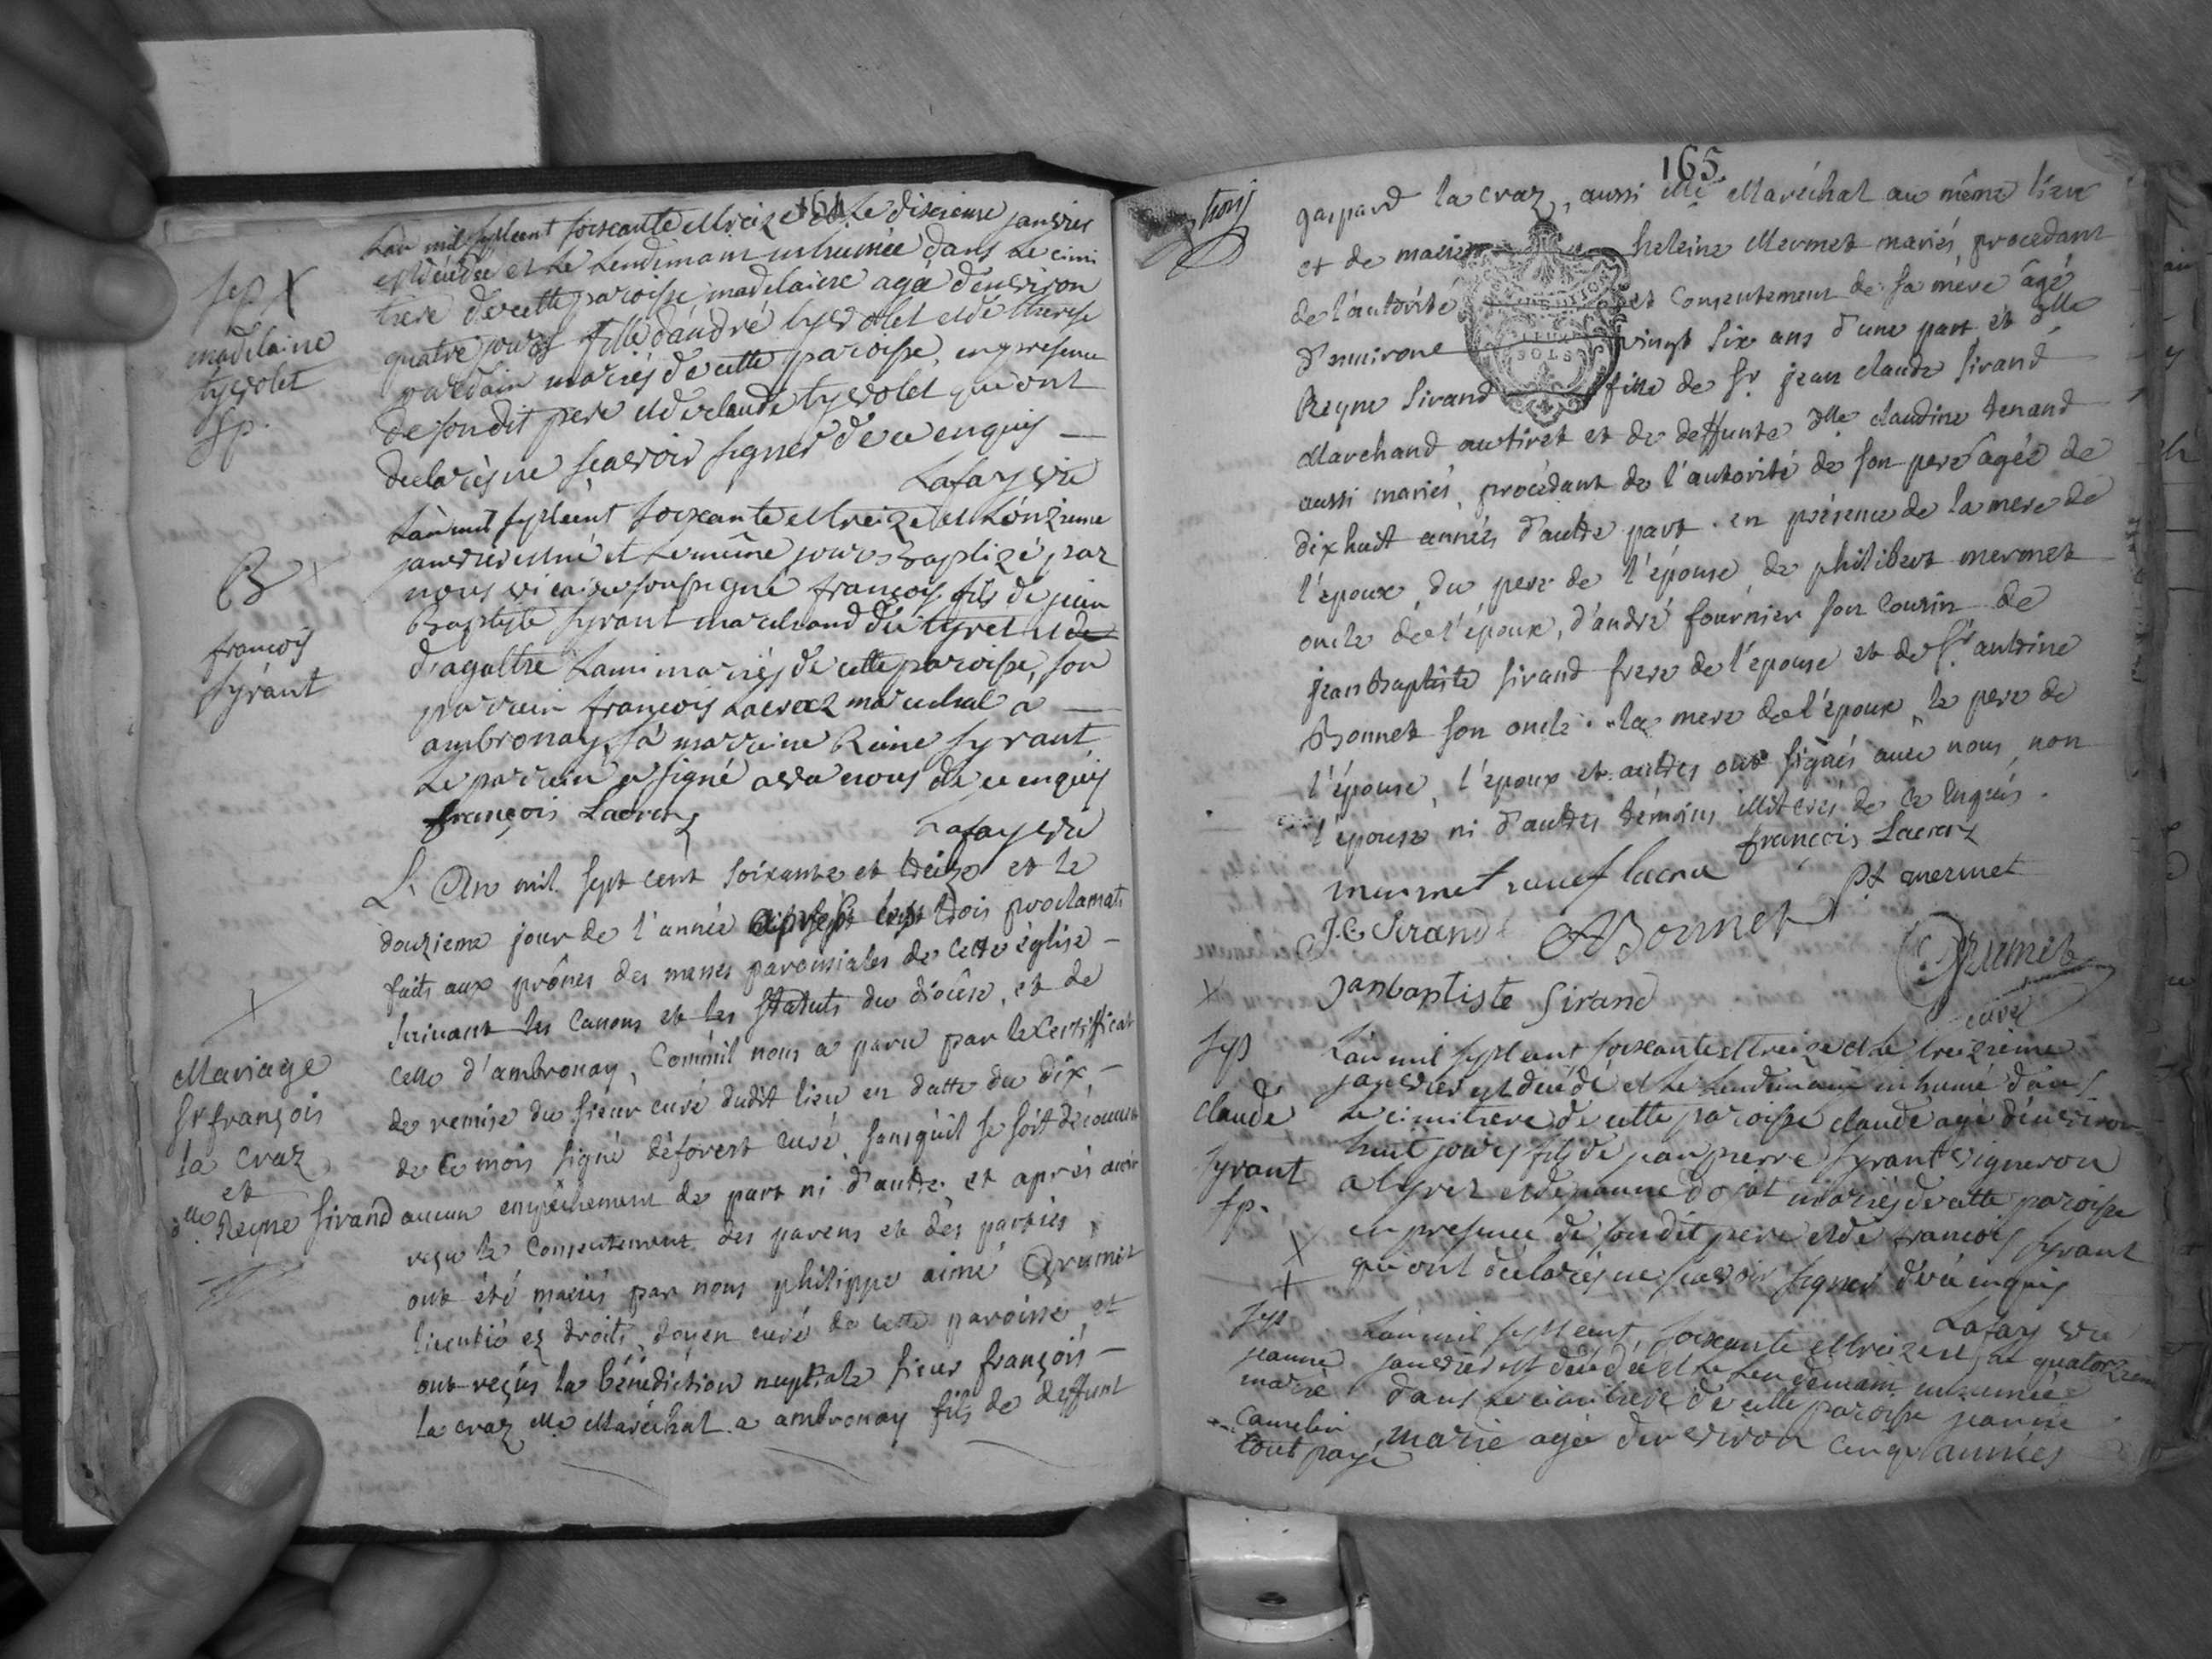 164
L'an mil sept cent soixante et treize et le dixieme janvier
est décédée et le lendemain inhumée dans le cimi
tiere de cette paroisse madelaine agée d'environ
quatre jours fille d'andré tyvolet et de therese
mariés de cette paroisse, en presence
de son dit pere et de claude tyvolet qui ont
declarés ne scavoir signer de ce enquis
Lafay vic
sep
madelaine
tyvolet
sp.
L'an mil sept cent soixante et treize et l'onzieme
janvier est né et le même jour baptizé par
nous vicaire soussigné françois fils de jean
Baptiste syrant marchand du tyret et de
d'agathe Lami mariés de cette paroisse, son
parrain françois Lacraz marechal a
ambronay, sa marraine Reine syrant
Le parrain a signé avec nous de ce enquis
françois Lacraz
Lafay vic
B
francois
syrant
L'An mil sept cent soixante et treize et le
douzieme jour de l'année après les trois proclamats
faits aux prônes des messes paroissiales de cette église
suivant les canons et les statuts du diocèse, et de
celle d'ambronay, comm'il nous a paru par le certifficat
de remise du sieur curé dudit lieu en datte du dix
de ce mois signé déforest curé, sans qu'il se soit découvert
aucun empêchement de part ni d'autre, et après avoir
reçu le consentement des parens et des parties,
ont été mariés par nous philippe aimé Grumet
licentié ez droits, doyen curé de cette paroisse, et
ont reçus la bénédiction nuptiale sieur françois
la craz Me Maréchal a ambronay fils de deffunt
Mariage
Sr françois
la craz
et
dlle Reyne Sirand
165
gaspard la craz, aussi Me Maréchal au même lieu
et de marie heleine Mermet mariés, procedant
de l'autorité et consentement de sa mère âgé
d'environt vingt six ans d'une part, et dlle
Reyne Sirand fille de Sr jean claude Sirand
Marchand au tiret et de deffunte dlle claudine tenand
aussi mariés, procédant de l'autorité de son pere âgée de
dix huit années d'autre part. en présence de la mere de
l'époux, du pere de l'épouse, de philibert mermet
oncle de l'époux, d'andré fournier son cousin de
jean Baptiste Sirand frere de l'épouse et de Sr antoine
Bonnet son oncle. la mere de l'époux, le pere de
l'épouse, l'époux et autres ont signés avec nous, non
l'épouse ni d'autres témoins illiterés de ce enquis.
françois Lacraz
mermet veuf lacra
Pt mermet
J.C Sirand
ABonnet
Grumet
curé
janbaptiste Sirand
L'an mil sept cent soixante et treize et le treizieme
janvier est décédé et le lendemain inhumé dans
Le cimitiere de cette paroisse claude agé d'environ
huit jours fils de jean pierre syrant vigneron
a tyret et de jeanne mariés de cette paroisse
en presence de son dit pere et de francois syrant
qui ont déclarés ne scavoir signer de ce enquis
Lafay vic
sep
claude
syrant
sp.
L'an mil sept cent soixante et treize et le quatorzieme
janvier est décédée et le lendemain inhumée
dans le cimitiere de cette paroisse jeanne
marie agée d'environ cinq années
sep
jeanne
marie
camelin
tout payé